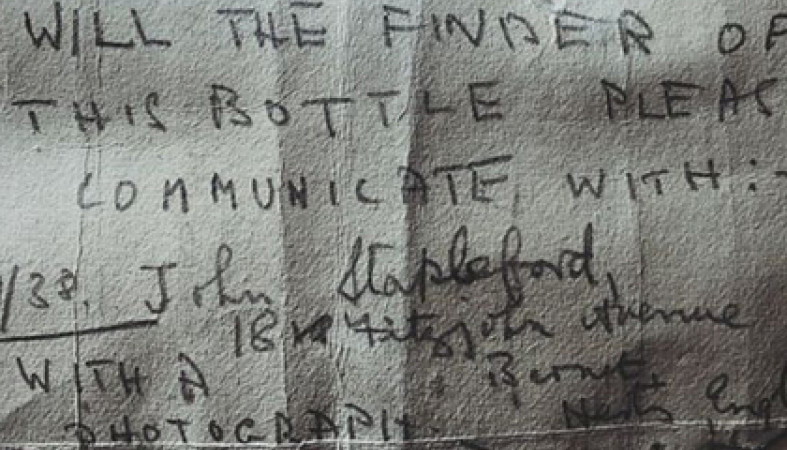 WILL THE FINDER OF
THIS BOTTLE PLEAS
COMMUNICATE WITH:-
/38. John Stapleford,
18 Fitzjohn Avenue
WITH A Barnet,
PHOTOGRAPH. Herts Engl